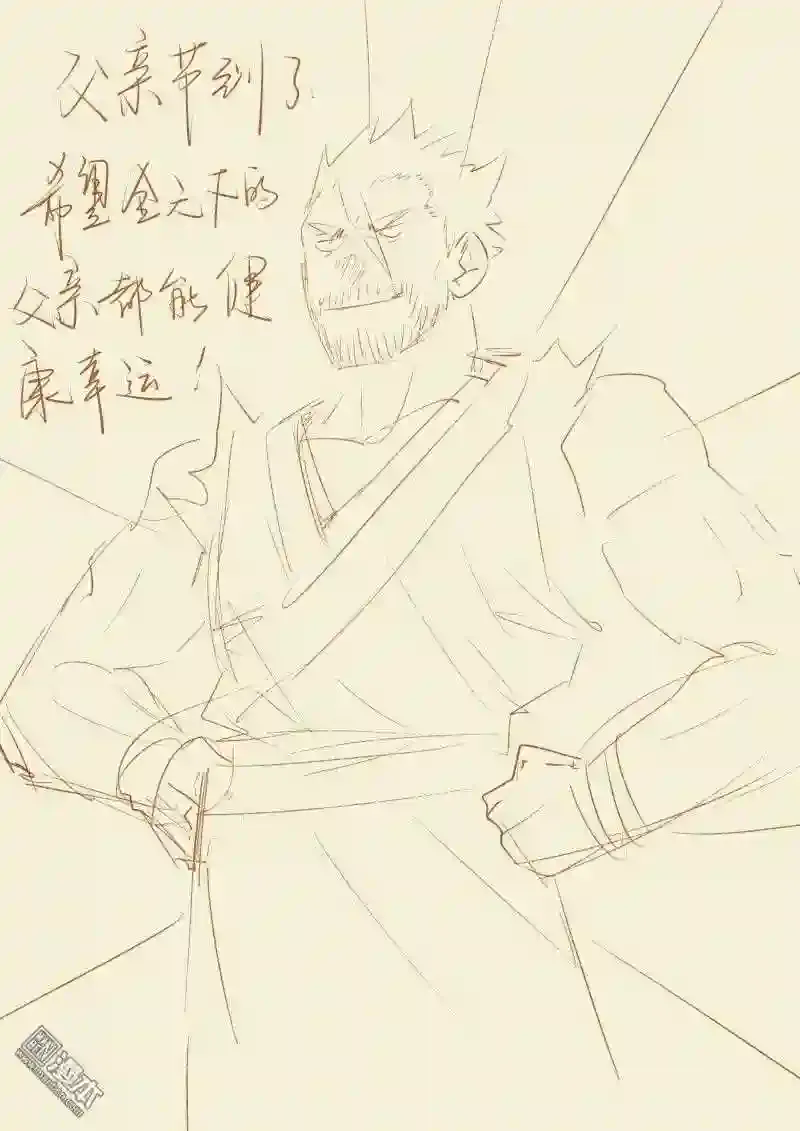 父亲节到了
希望全天下的
父亲都能健
康幸运！
漫本